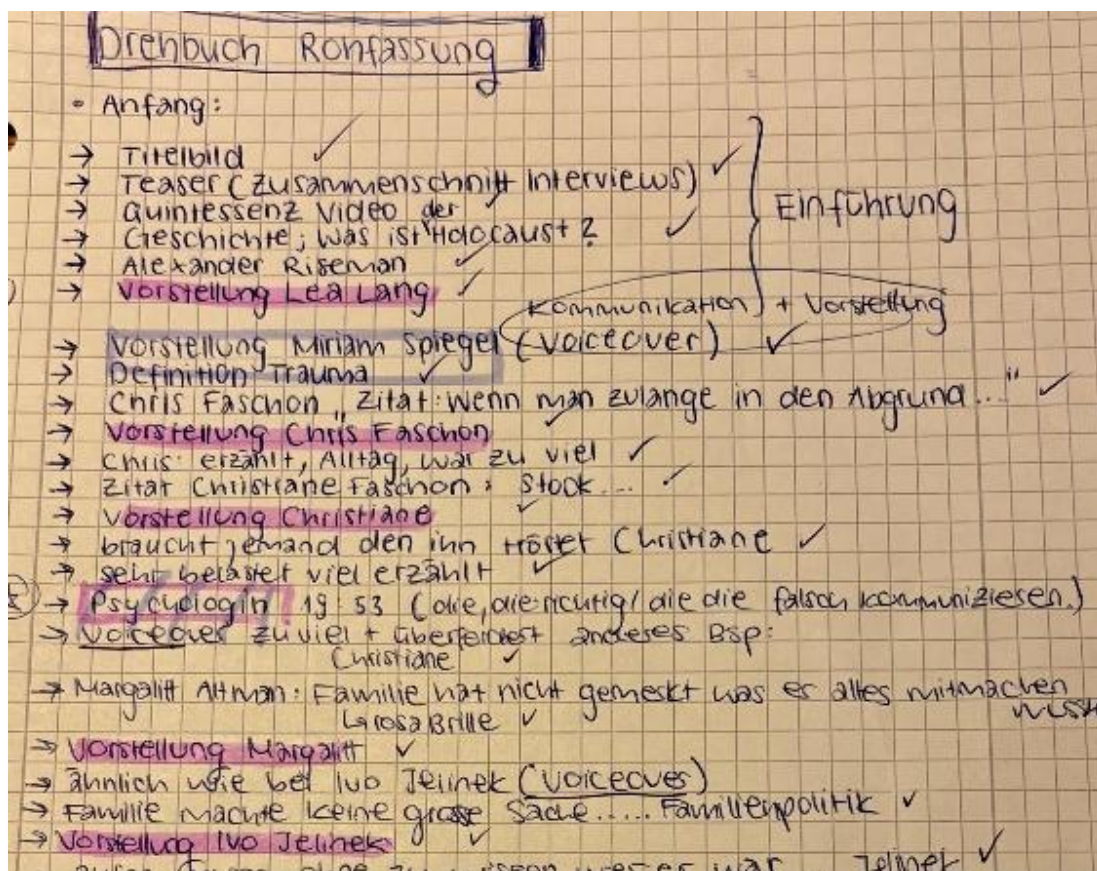 Drehbuch Rohfassung
• Anfang:
→ Titelbild ✓
→ Teaser (Zusammenschnitt Interviews) ✓
→ Quintessenz Video der ✓
→ Geschichte; Was ist Holocaust? ✓
Einführung
→ Alexander Riseman ✓
→ Vorstellung Lea Lang ✓
Kommunikation) + Vorstellung
→ Vorstellung Miriam Spiegel (Voiceover) ✓
→ Definition Trauma ✓
→ Chris Faschon „Zitat: Wenn man zulange in den Abgrund..." ✓
→ Vorstellung Chris Faschon ✓
→ Chris: erzählt, Alltag, war zu viel ✓
→ Zitat Christiane Faschon: Stock... ✓
→ Vorstellung Christiane ✓
→ braucht jemand den ihn tröstet Christiane ✓
→ sehr belastet viel erzählt ✓
→ Psychologin 19:53 (die, die richtig/die die falsch kommunizieren.)
→ Voiceover zuviel + überfordert anderes Bsp:
Christiane ✓
→ Margalitt Altman: Familie hat nicht gemerkt was er alles mitmachen
↳ rosa Brille ✓
→ Vorstellung Margalitt ✓
→ ähnlich wie bei Ivo Jelinek (Voiceover)
→ Familie machte keine grosse Sache..... Familienpolitik ✓
→ Vorstellung Ivo Jelinek ✓
Jelinek ✓